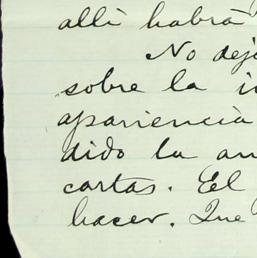 allí habrá
No dej
sobre la i
apariencia
dido la an
cartas. El
hacer. Que